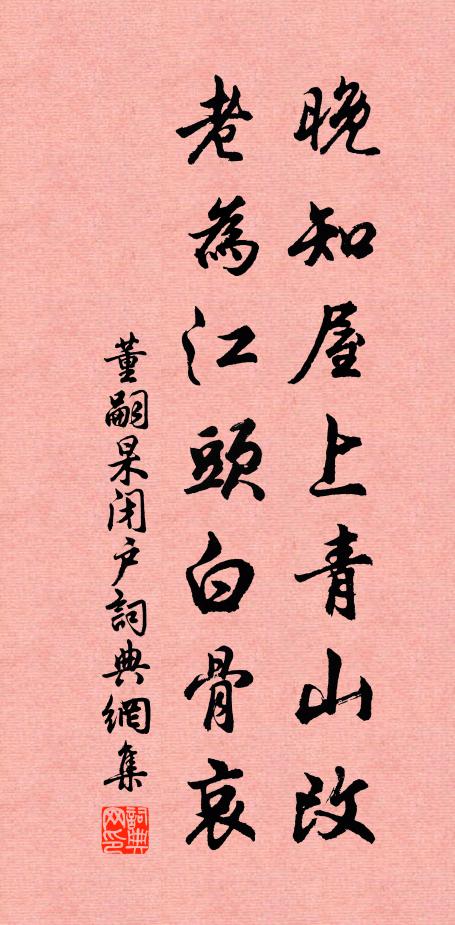 晚知屋上青山改
老為江頭白骨哀
董嗣杲闭户詞典網集
詞典网印